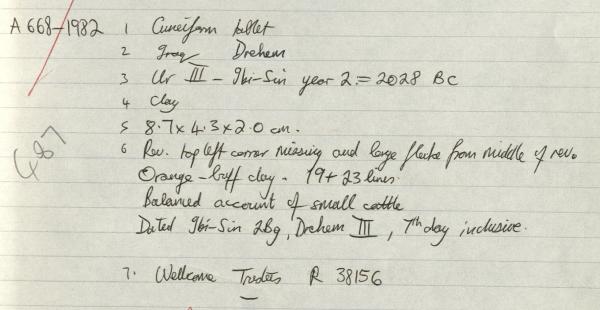 A 668-1982 1 Cuneiform tablet
2 Iraq Drehem
3 Ur III - Ibi-Sin year 2 = 2028 BC
4 Clay
5 8.7 x 4.3 x 2.0 cm.
6 Rev. top left corner missing and large flake from middle of rev.
Orange-buff clay. 19 + 23 lines.
Balanced account of small cattle
Dated Ibi-Sin 2Bg, Drehem III, 7th day inclusive.
7. Wellcome Trustees R 38156
487